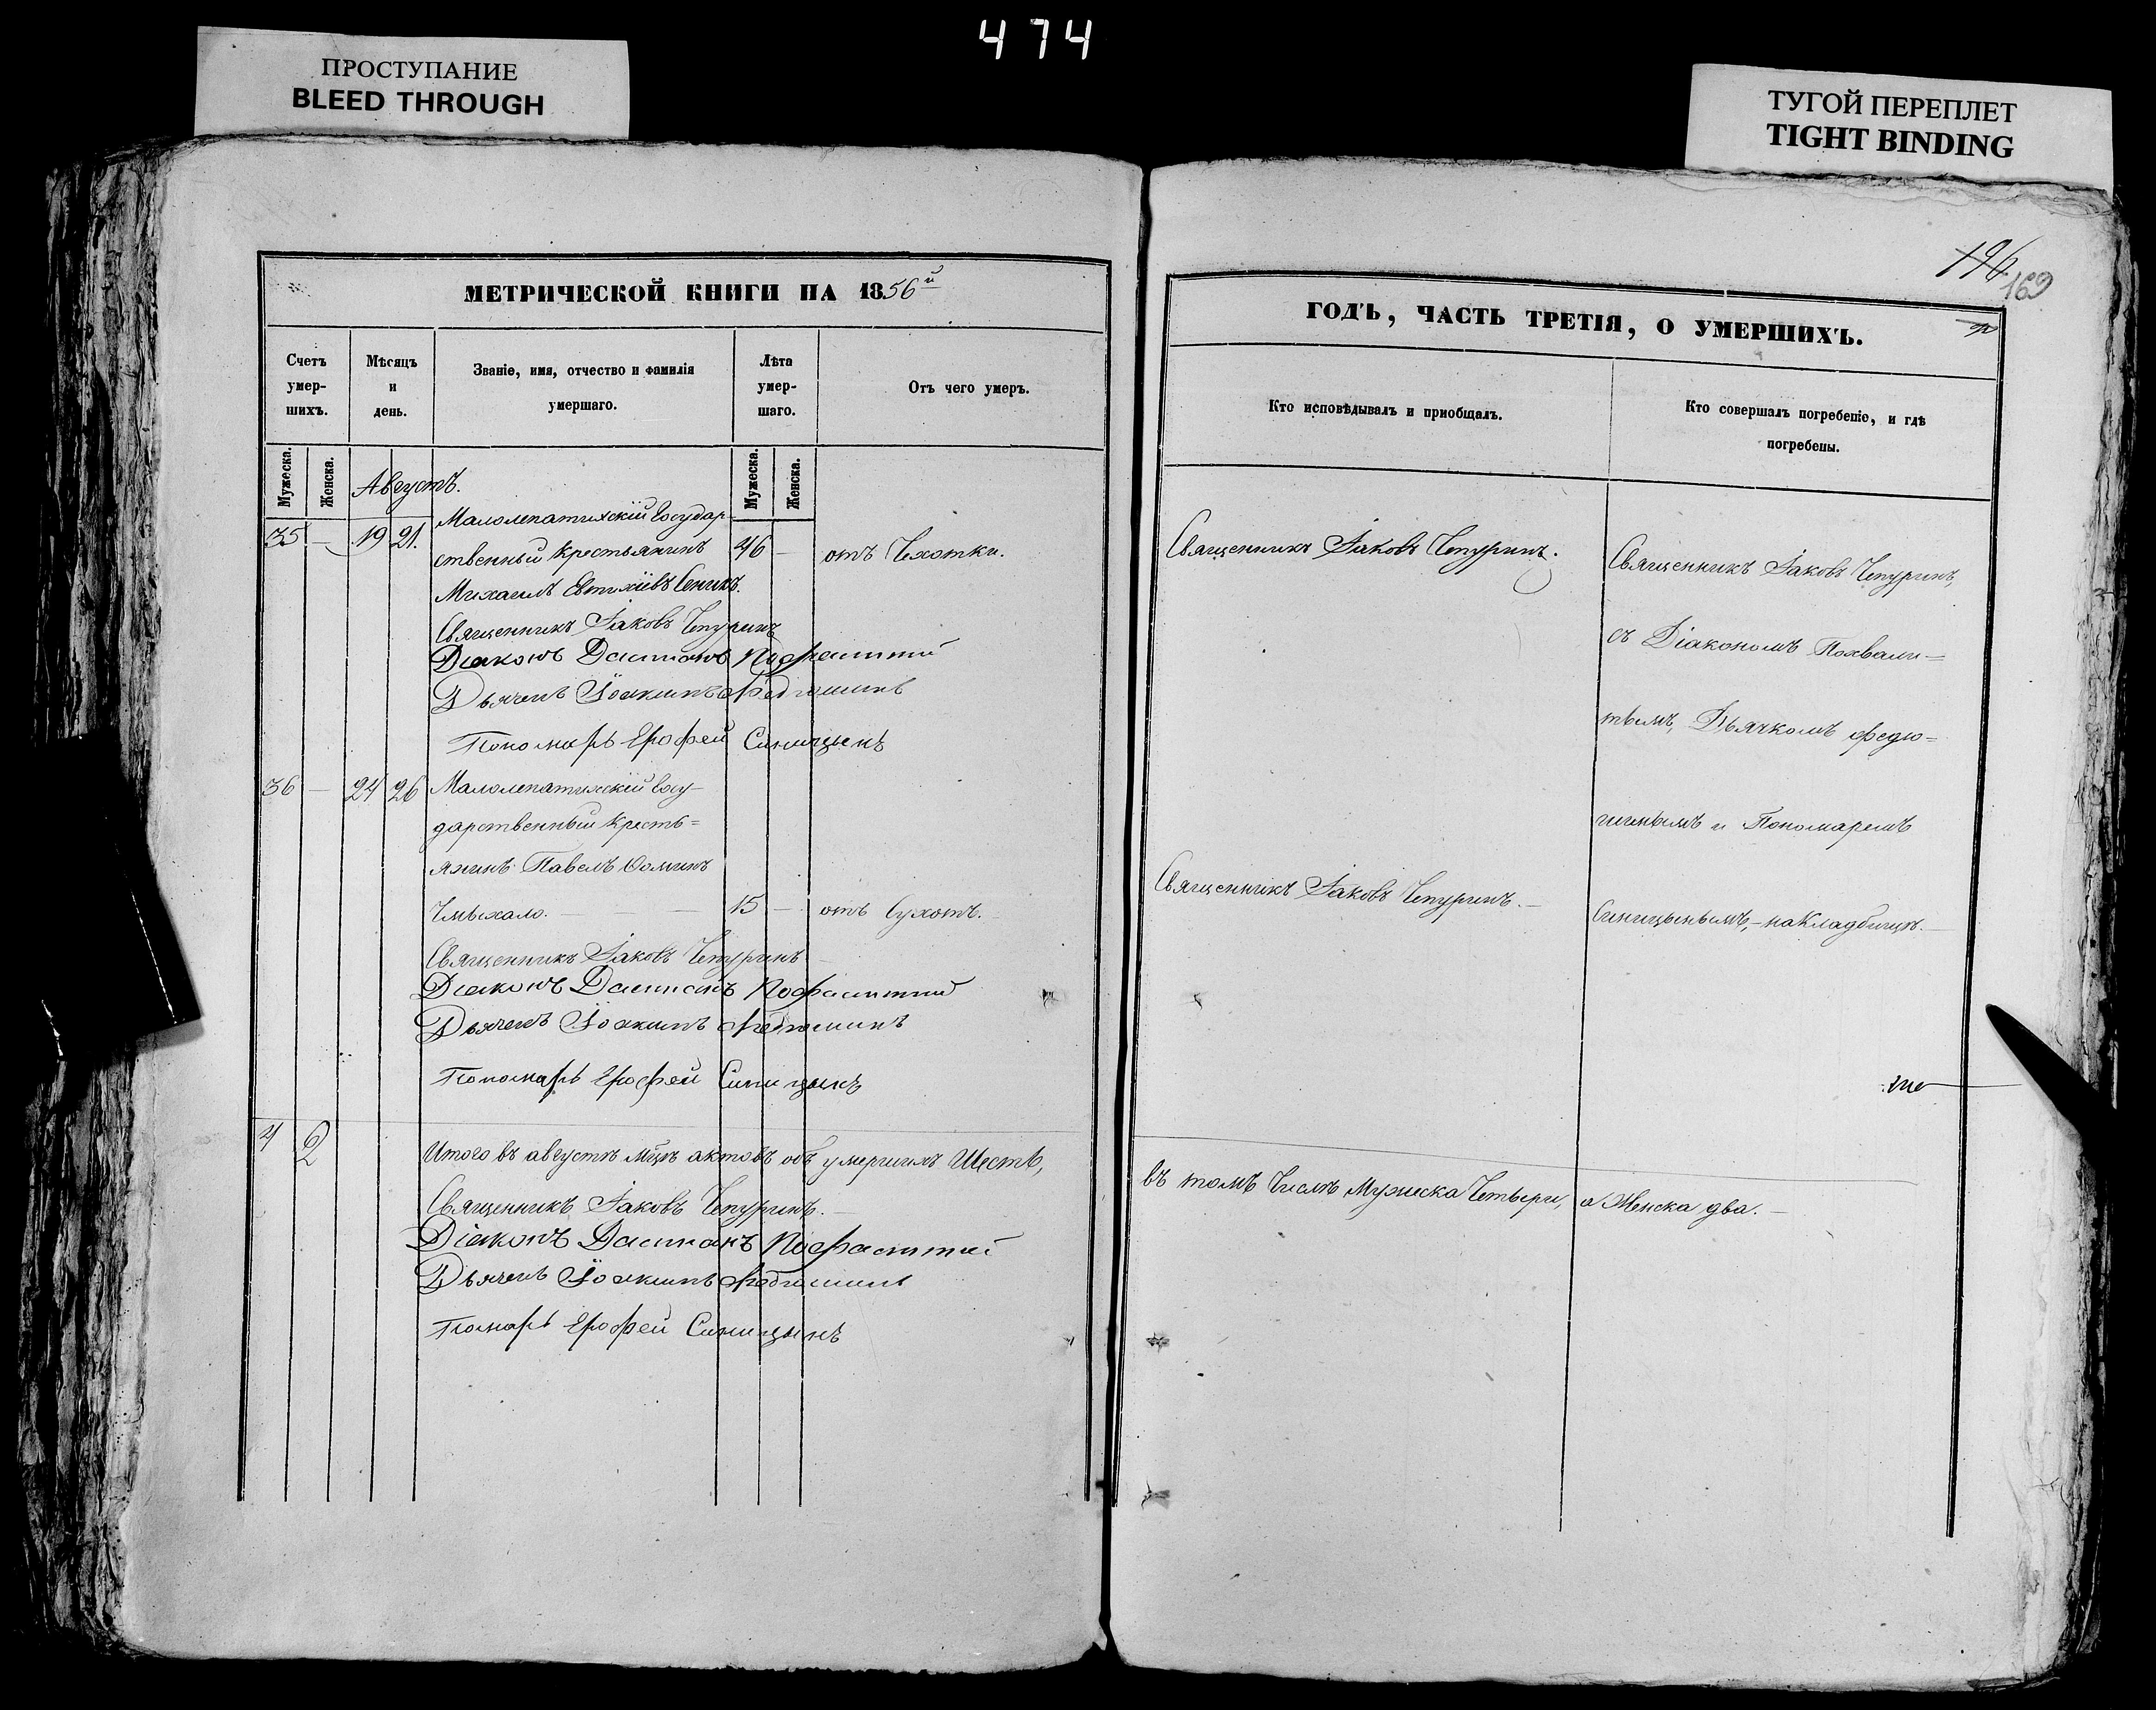 474
ПРОСТУПАНИЕ
BLEED THROUGH
ТУГОЙ ПЕРЕПЛЕТ
TIGHT BINDING
196
169
МЕТРИЧЕСКОЙ КНИГИ НА 1856й
Счетъ умер-шихъ.
Мѣсяцъ и день.
Званіе, имя, отчество и фамилія умершаго.
Лѣта умер-шаго.
Отъ чего умеръ.
Мужеска.
Женска.
Мужеска.
Женска.
Августъ.
Малолепатихскій Государ-
35 — 19 21. ственный крестьянинъ 46 — отъ Чахотки.
Михаилъ Евтихіевъ Сеникъ.
Священникъ Іаковъ Чепуринъ
Діаконъ Даміанъ
Дьячекъ Іоакимъ Федюшинъ
Пономарь Ерофей Синицынъ
36 — 24 26 Малолепатихскій Госу-
дарственный Кресть=
янинъ Павелъ Ѳоминъ
Чмыхало. — 15 — отъ Сухотъ.
Священникъ Іаковъ Чепуринъ
Діаконъ Даміанъ
Дьячекъ Іоакимъ Федюшинъ
Пономарь Ерофей Синицынъ
4 2
Итого въ августѣ мцѣ актовъ объ умершихъ Шесть,
Священникъ Іаковъ Чепуринъ.
Діаконъ Даміанъ
Дьячекъ Іоакимъ Федюшинъ
Понарь Ерофей Синицынъ
ГОДЪ, ЧАСТЬ ТРЕТІЯ, О УМЕРШИХЪ.
Кто исповѣдывалъ и приобщалъ.
Кто совершалъ погребеніе, и гдѣ
погребены.
Священникъ Іаковъ Чепуринъ.
Священникъ Іаковъ Чепуринъ,
съ Діакономъ Похвали=
тымъ, Дьячкомъ Федю=
шинымъ и Пономаремъ
Священникъ Іаковъ Чепуринъ. —
Синицынымъ, — на Кладбищѣ. —
въ томъ Числѣ Мужеска Четыри, а Женска два. —